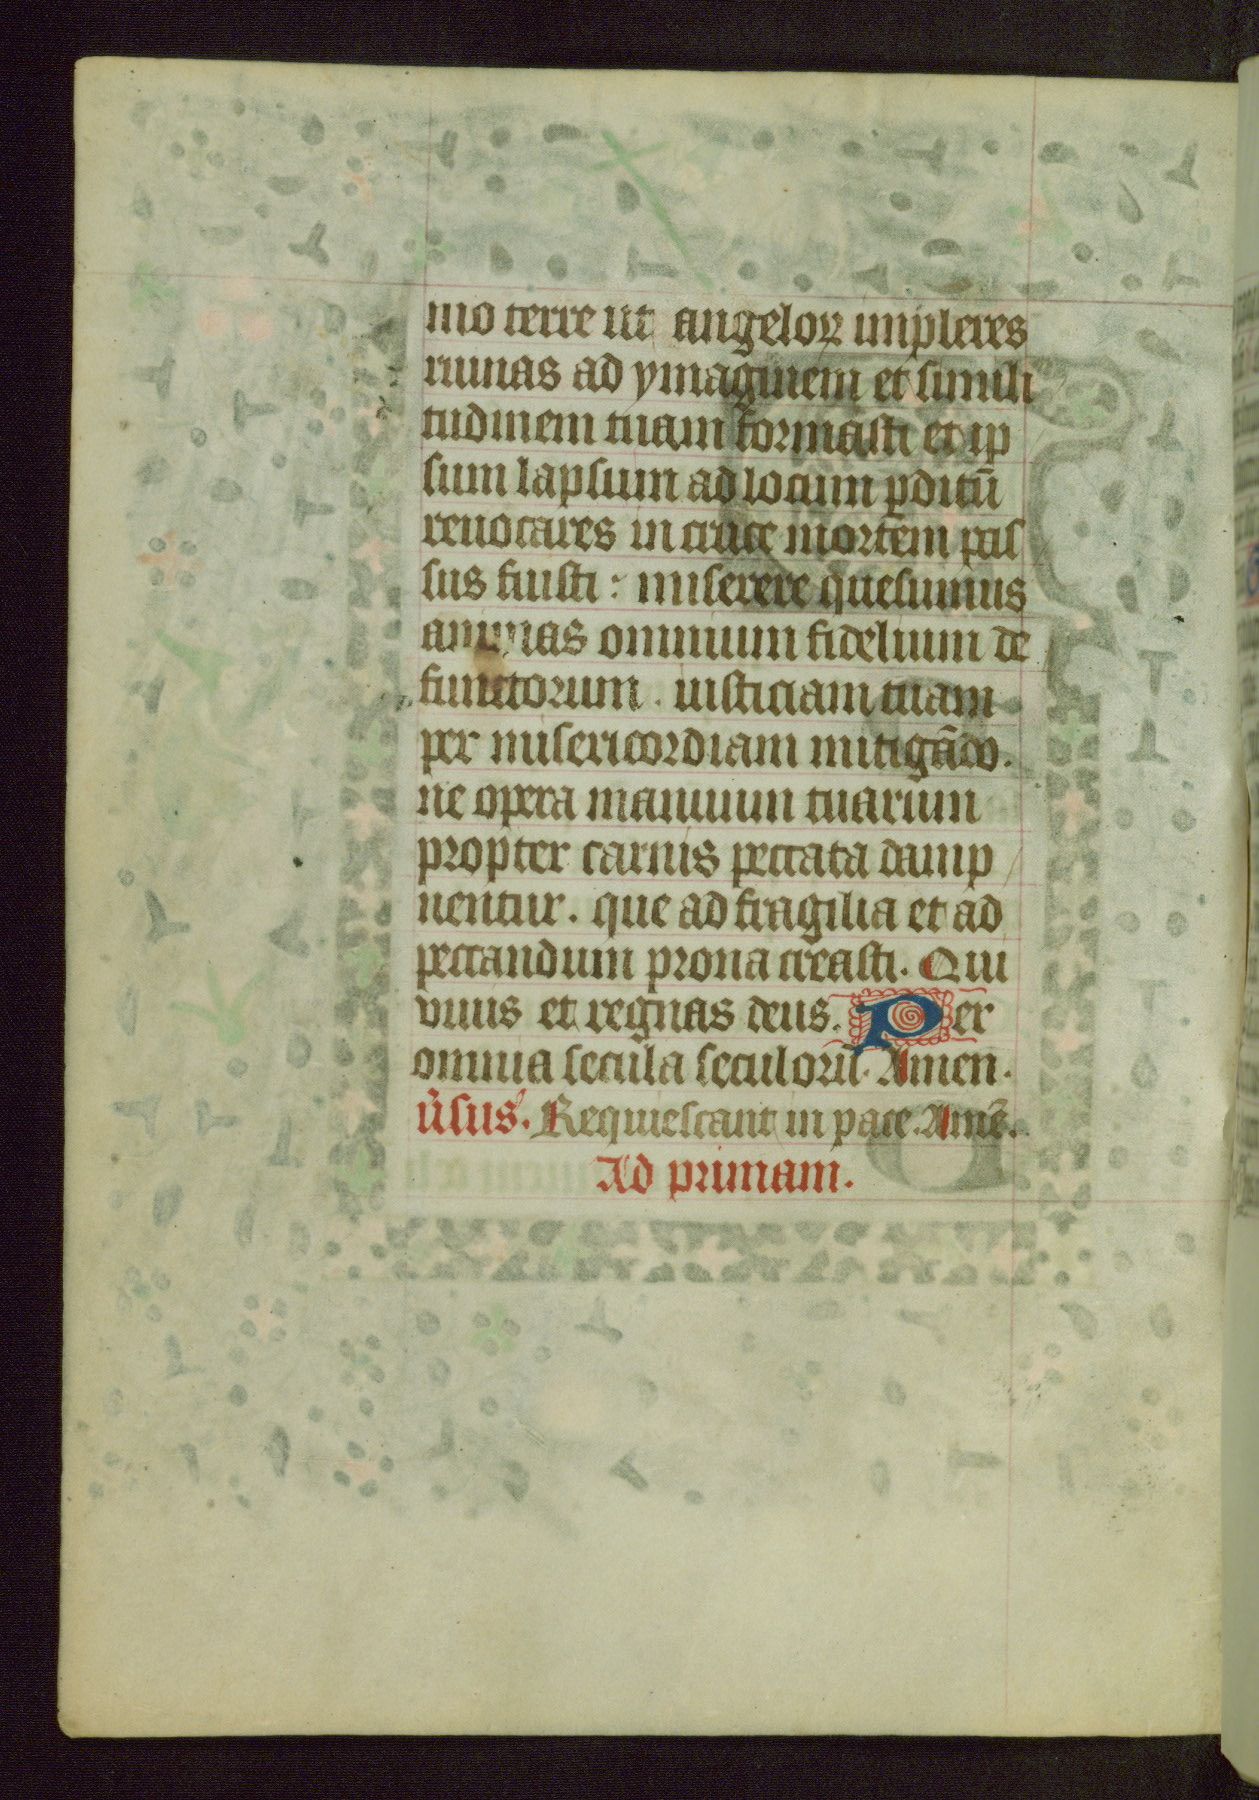 mo terre ut angeloꝝ impleres
ruinas ad ymaginem et simili
tudinem tuam formasti et ip
sum lapsum ad locum ꝑditū
reuocares in cruce mortem pas
sus fuisti : miserere quesumus
animas omnium fidelium de
functorum . iusticiam tuam
per misericordiam mitigādo .
ne opera manuum tuarum
propter carnis peccata damp
nentur . que ad fragilia et ad
peccandum prona creasti . Qui
viuis et regnas deus . Per
omnia secula seculorū . Amen .
v̉sus . Requiescant in pace . Amē .
Ad primam .